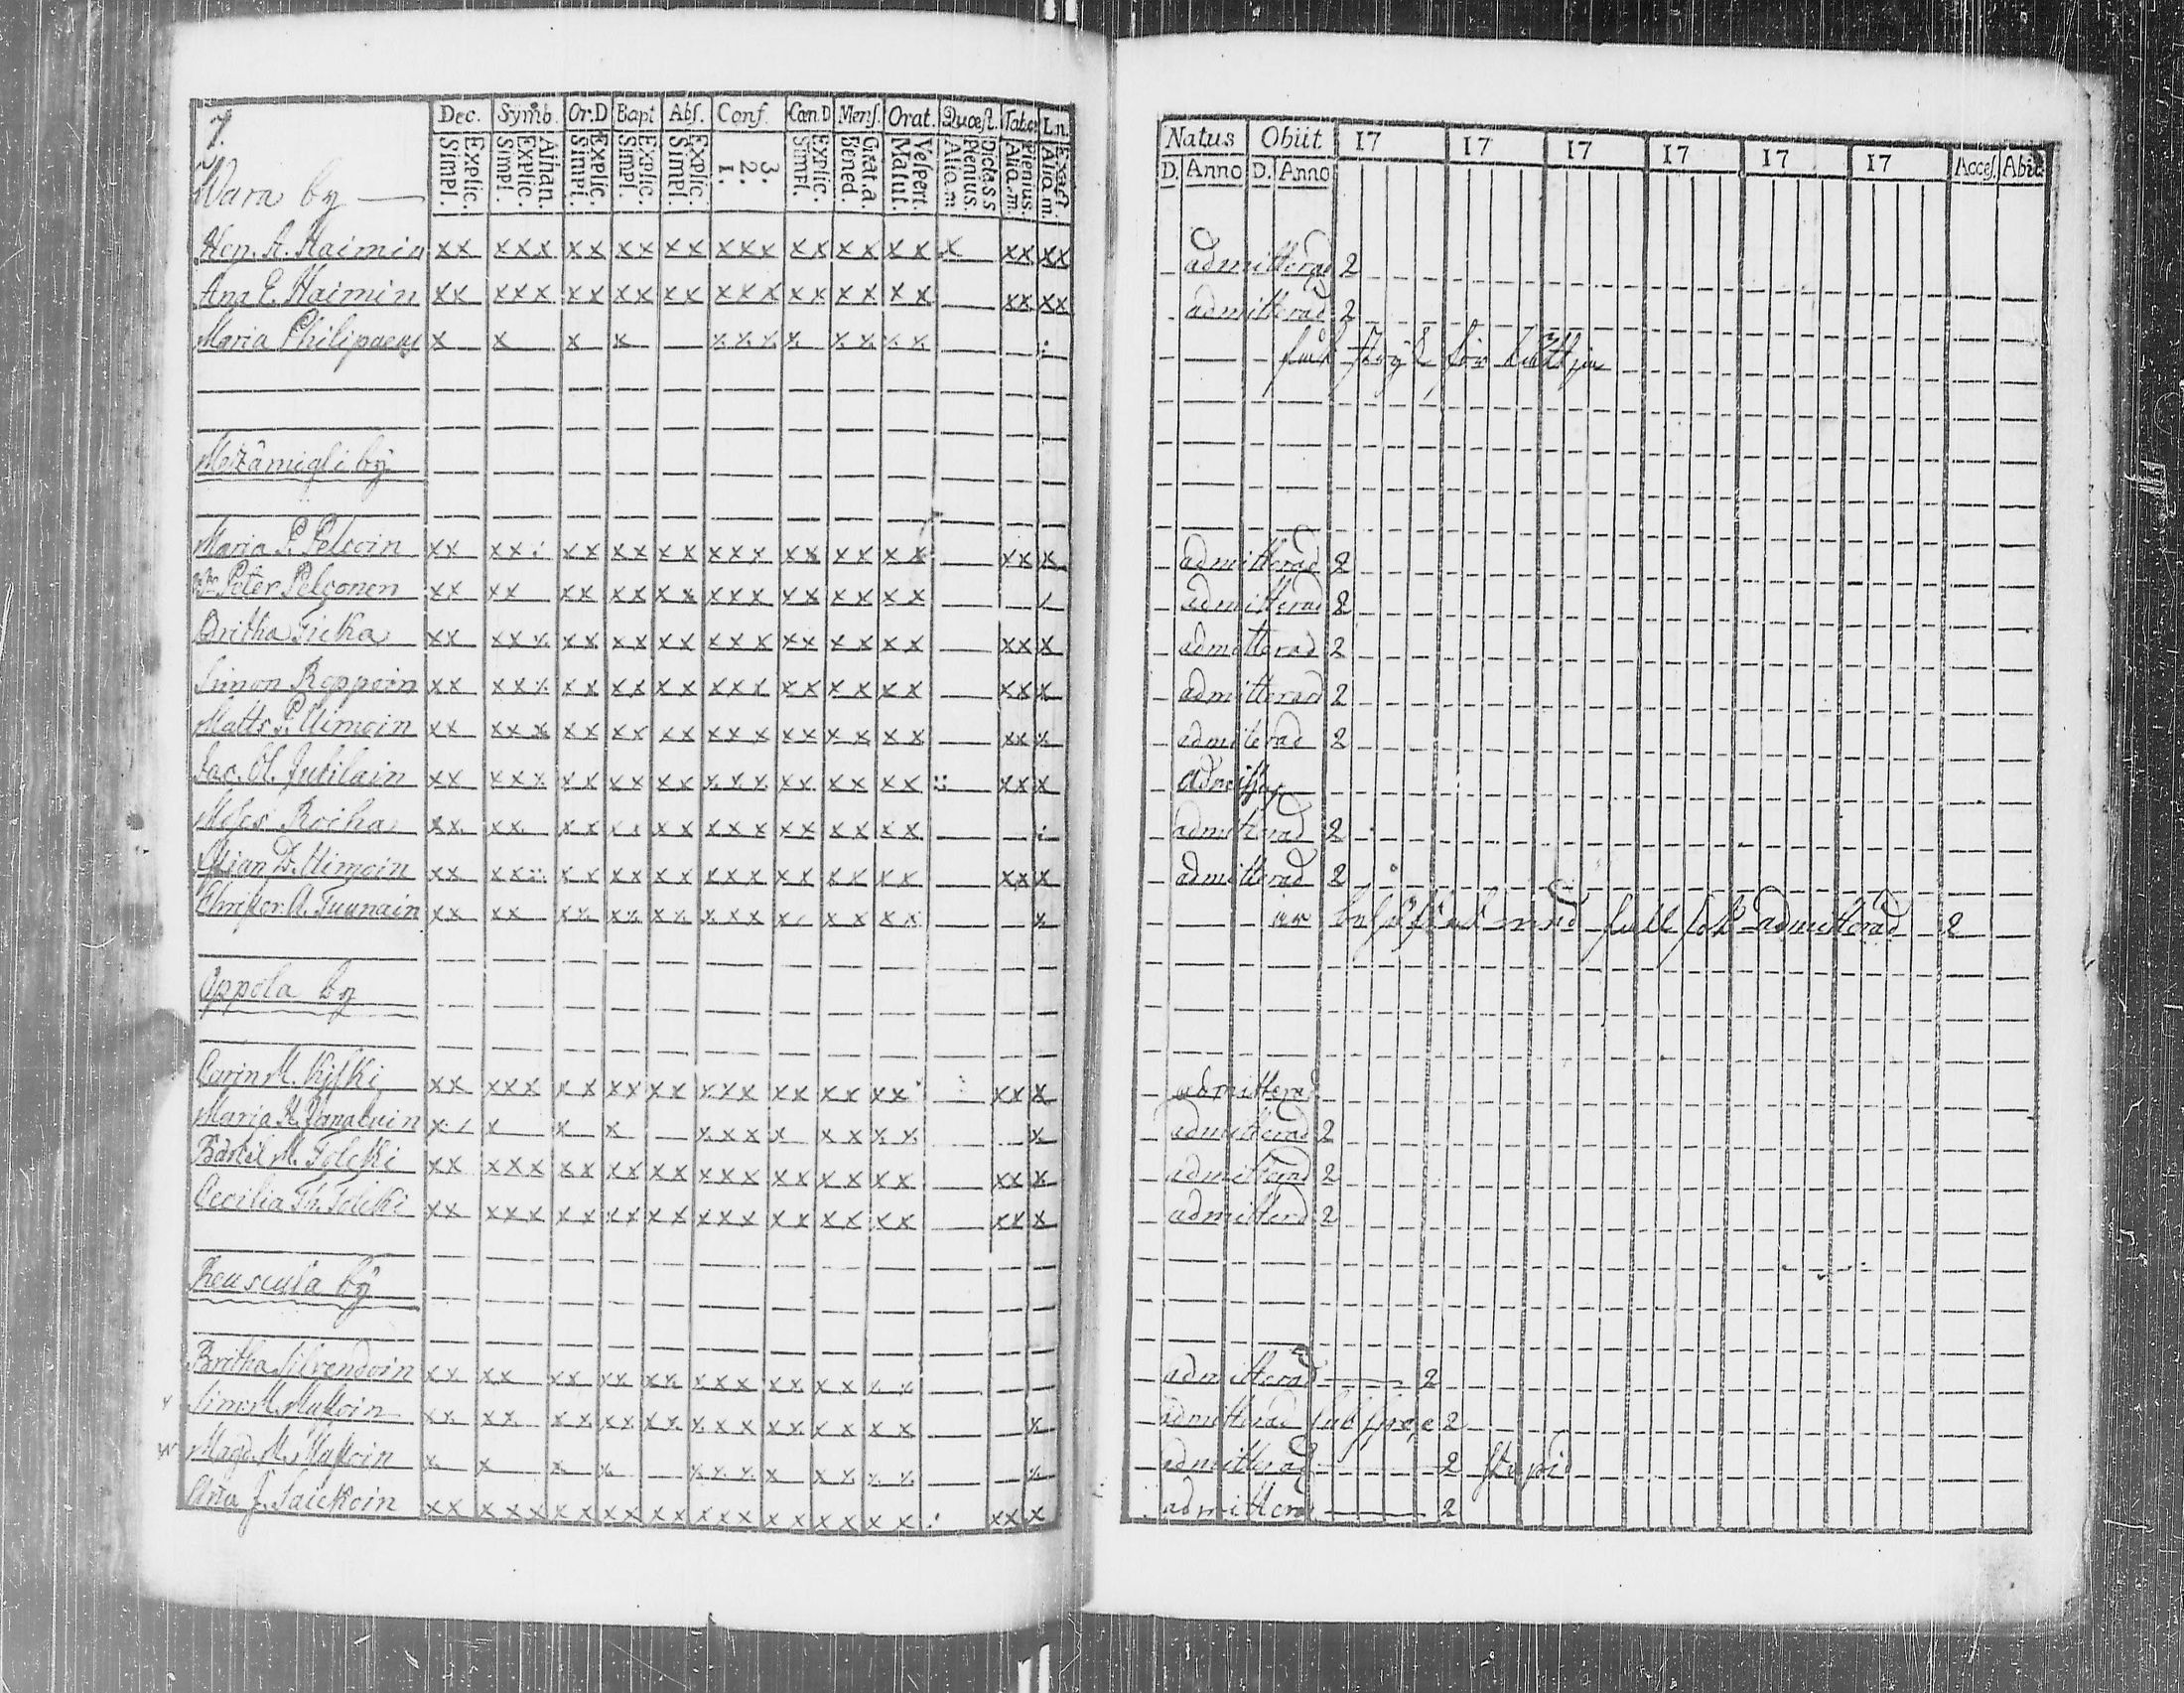 7.
Dec. Symb. Or.D Bapt Abs. Conf. Cœn.D Mens. Orat. Quæst. Tabœ Ln.
Simpl. Explic. Simpl. Explic. Athan. Simpl. Explic. Simpl. Explic. Simpl. Explic. 1. 2. 3. Simpl. Explic. Bened. Grat.a. Matut. Vespert. Aliq.m Plenius. Dicta SS Aliq.m. Plenius. Aliq.m. Exact.
Wara by
Hen. H. Haimin xx xxx xx xx xx xxx xx xx xx x xx xx
Ana E. Haimin xx xxx xx xx xx xxx xx xx xx xx xx
Maria Philipaeus x x x x xxx x xx xx
by
Maria P. Pelcoin xx xx xx xx xx xxx xx xx xx xx x
Peter Pelconen xx xx xx xx xx xxx xx xx xx
Britha Ticka xx xxx xx xx xx xxx xx xx xx xx x
Simon Reppoin xx xxx xx xx xx xxx xx xx xx xx x
Matts P. Uimoin xx xxx xx xx xx xxx xx xx xx xx x
Jac. Ol. Jutilain xx xxx xx xx xx xxx xx xx xx xx x
Rocha xx xx xx xx xx xxx xx xx xx
D. Uimoin xx xx xx xx xx xxx xx xx xx xx x
Christor. A. Tuunain xx xx xx xx xx xxx xx xx xx x
Oppola by
Carin M. Kiski xx xxx xx xx xx xxx xx xx xx xx x
Maria H. x x x x xxx x xx xx x
Bertil M. Tolcki xx xxx xx xx xx xxx xx xx xx xx x
Cecilia Th. Tolcki xx xxx xx xx xx xxx xx xx xx xx x
Reuscula by
Britha Silvendoin xx xx xx xx xx xxx xx xx xx
Simo M. Mustoin xx xx xx xx xx xxx xx xx xx x
Magd. M. Mustoin x x x x xxx x xx xx x
Ana J. Saickoin xx xxx xx xx xx xxx xx xx xx xx x
Natus Obiit 17 17 17 17 17 17 Acces. Abit
D. Anno D. Anno
admitterad 2
admitterad 2
för
admitterad 2
admitterad 2
admitterad 2
admitterad 2
admiterad 2
admitterad 2
admitterad 2
med admitterad 2
admitterad
admitterad 2
admitterad 2
admitterd 2
admitterad 2
admitterad sub spe 2
admitterad 2 stupid
admitterad 2